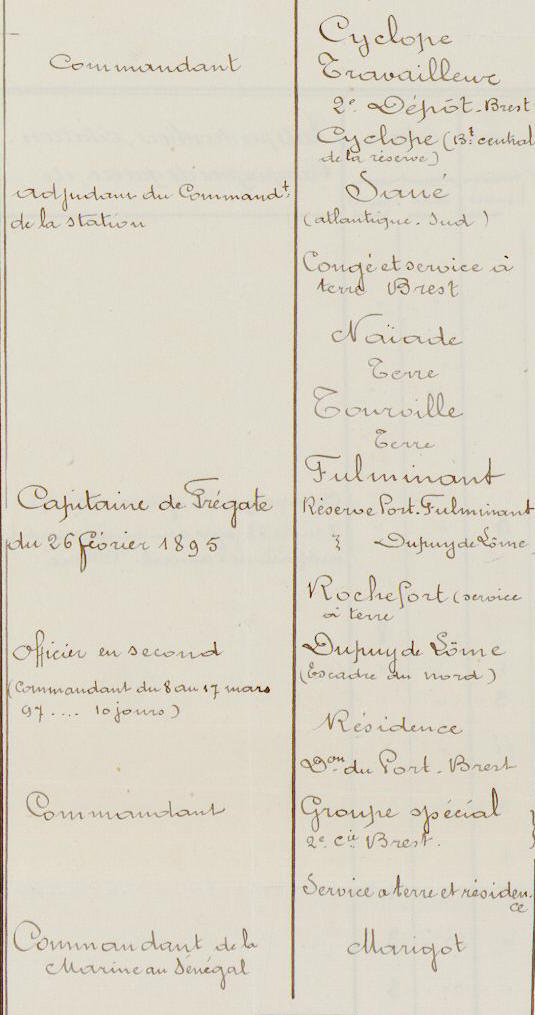 Cyclope
Commandant
Travailleur
2e Dépôt. Brest
Cyclope (Bt central
de la réserve)
adjudant du Commandt
de la station
Sané
(atlantique. Sud)
Congé et service à
terre Brest
Naïade
Terre
Tourville
Terre
Fulminant
Capitaine de Frégate
Réserve Port. Fulminant
du 26 février 1895
" Dupuy de Lôme
Rochefort (service
à terre
Officier en second
Dupuy de Lôme
(Escadre du nord)
(Commandant du 8 au 17 mars
97 .... 10 jours)
Résidence
Don du Port. Brest
Commandant
Groupe spécial
2e Cie Brest.
Service a terre et résiden.
ce
Commandant de la
Marine au Sénégal
Marigot